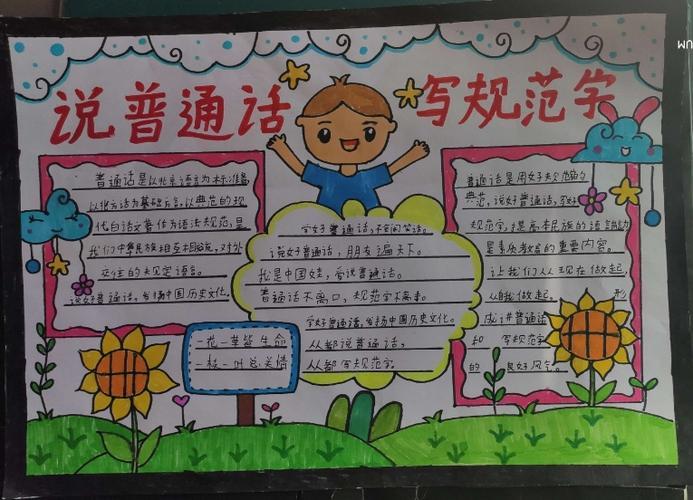 说普通话 写规范字
普通话是以北京语言为标准音
以北方话为基础方言,以典范的现
代白话文著作为语法规范,是
我们中华民族相互相交流,对外
交往的规定语言。
说好普通话,发扬中国历史文化。
学好普通话,不闹笑话。
说好普通话,朋友遍天下。
我是中国娃,会说普通话。
普通话不离口,规范字不离手。
学好普通话,发扬中国历史文化。
人人都说普通话,
人人都写规范字。
一花一草皆生命
一枝一叶总关情
普通话是用好规范的
典范,说好普通话,写好
规范字,提高本民族的语言能力
是素质教育的重要内容。
让我们从现在做起,
从自我做起, 形
成讲普通话
和 写规范字
的 良好风气。